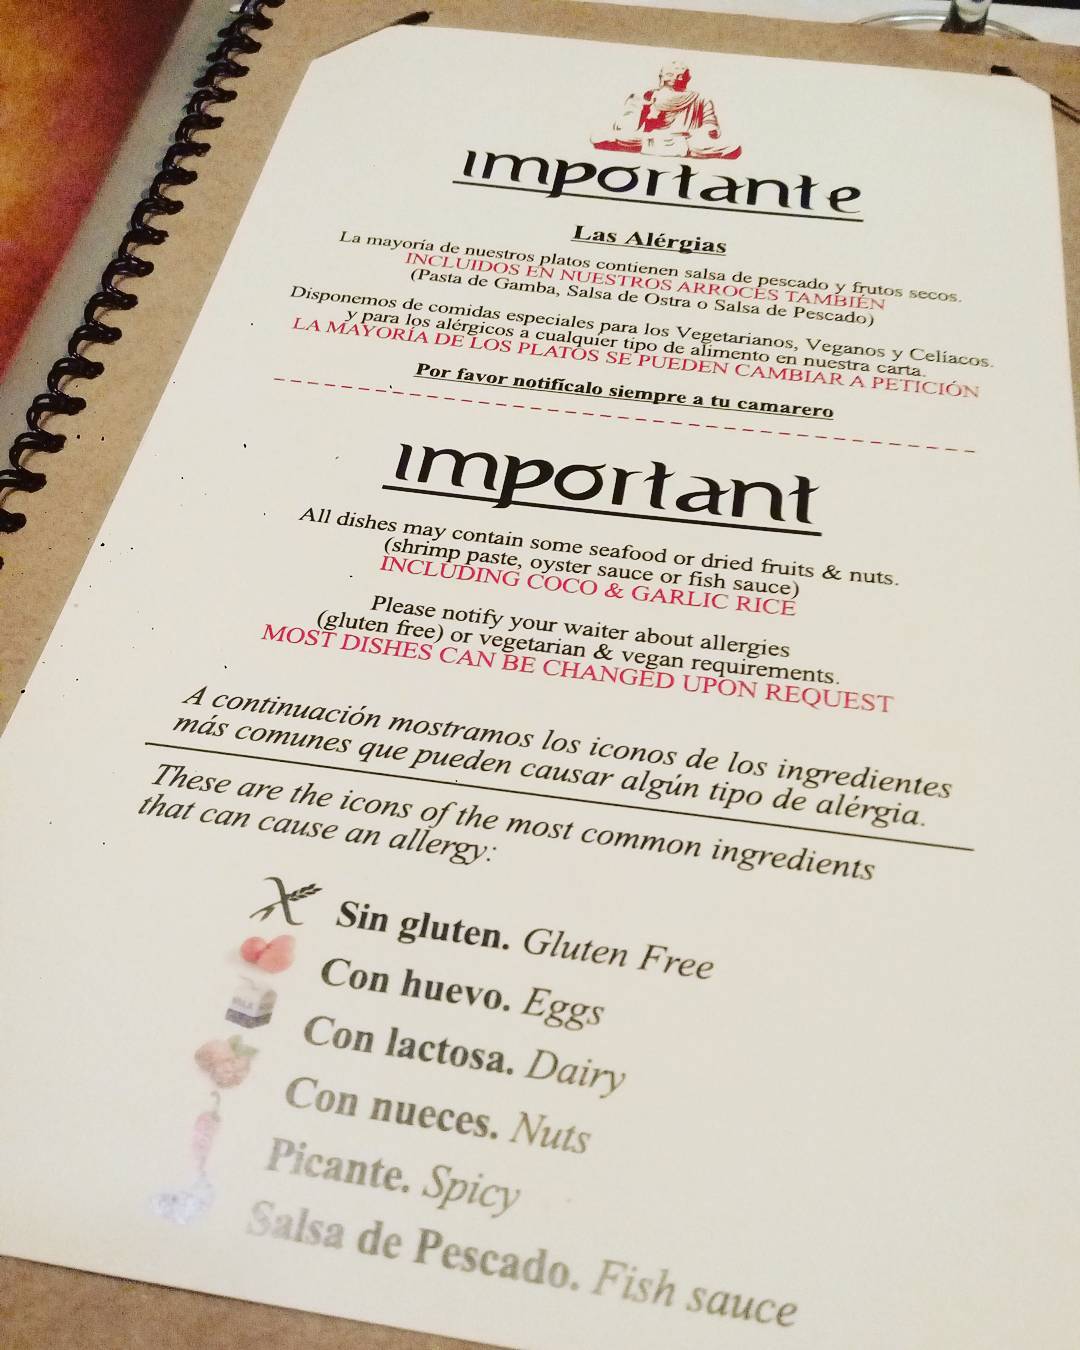 Importante
Las Alérgias
La mayoría de nuestros platos contienen salsa de pescado y frutos secos.
INCLUIDOS EN NUESTROS ARROCES TAMBIÉN
(Pasta de Gamba, Salsa de Ostra o Salsa de Pescado)
Disponemos de comidas especiales para los Vegetarianos, Veganos y Celíacos.
y para los alérgicos a cualquier tipo de alimento en nuestra carta.
LA MAYORÍA DE LOS PLATOS SE PUEDEN CAMBIAR A PETICIÓN
Por favor notifícalo siempre a tu camarero
Important
All dishes may contain some seafood or dried fruits & nuts.
(shrimp paste, oyster sauce or fish sauce)
INCLUDING COCO & GARLIC RICE
Please notify your waiter about allergies
(gluten free) or vegetarian & vegan requirements.
MOST DISHES CAN BE CHANGED UPON REQUEST
A continuación mostramos los iconos de los ingredientes
más comunes que pueden causar algún tipo de alérgia.
These are the icons of the most common ingredients
that can cause an allergy:
Sin gluten. Gluten Free
Con huevo. Eggs
Con lactosa. Dairy
Con nueces. Nuts
Picante. Spicy
Salsa de Pescado. Fish sauce